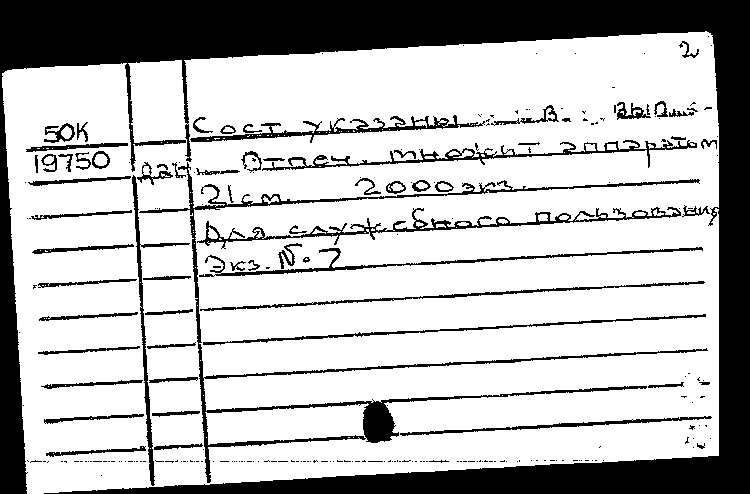 2
50К Сост. указаны в вып.
19750 дан Отпеч. множит аппаратом
21см. 2000экз.
Для служебного пользования
Экз. № 7